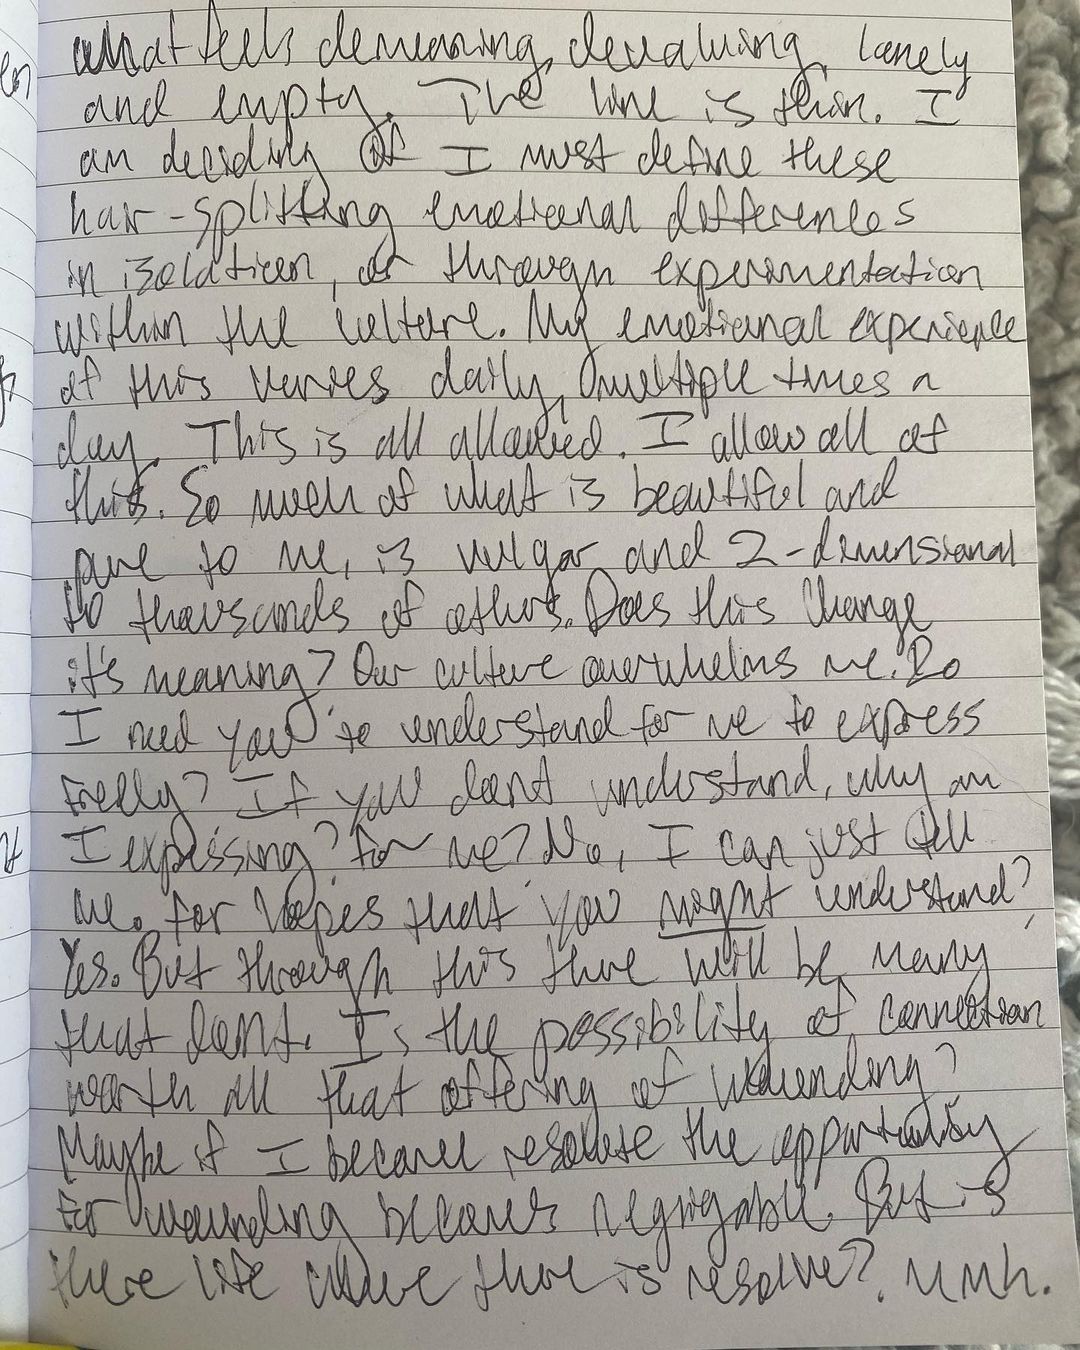 what feels demeaning, devaluing, lonely
and empty. The line is thin. I
am deciding if I must define these
hair-splitting emotional differences
in isolation, or through experimentation
within the culture. My emotional experience
of this varies daily, multiple times a
day. This is all allowed. I allow all of
this. So much of what is beautiful and
pure to me, is vulgar and 2-dimensional
to thousands of others. Does this change
it's meaning? Our culture overwhelms me. Do
I need you to understand for me to express
freely? If you dont understand, why am
I expressing? For me? No, I can just tell
me. For hopes that you might understand?
Yes. But through this there will be many
that dont. Is the possibility of connection
worth all that offering of wounding?
Maybe if I became resolute the opportunity
for wounding becomes negligable. But is
there life where there is resolve? Mmh.